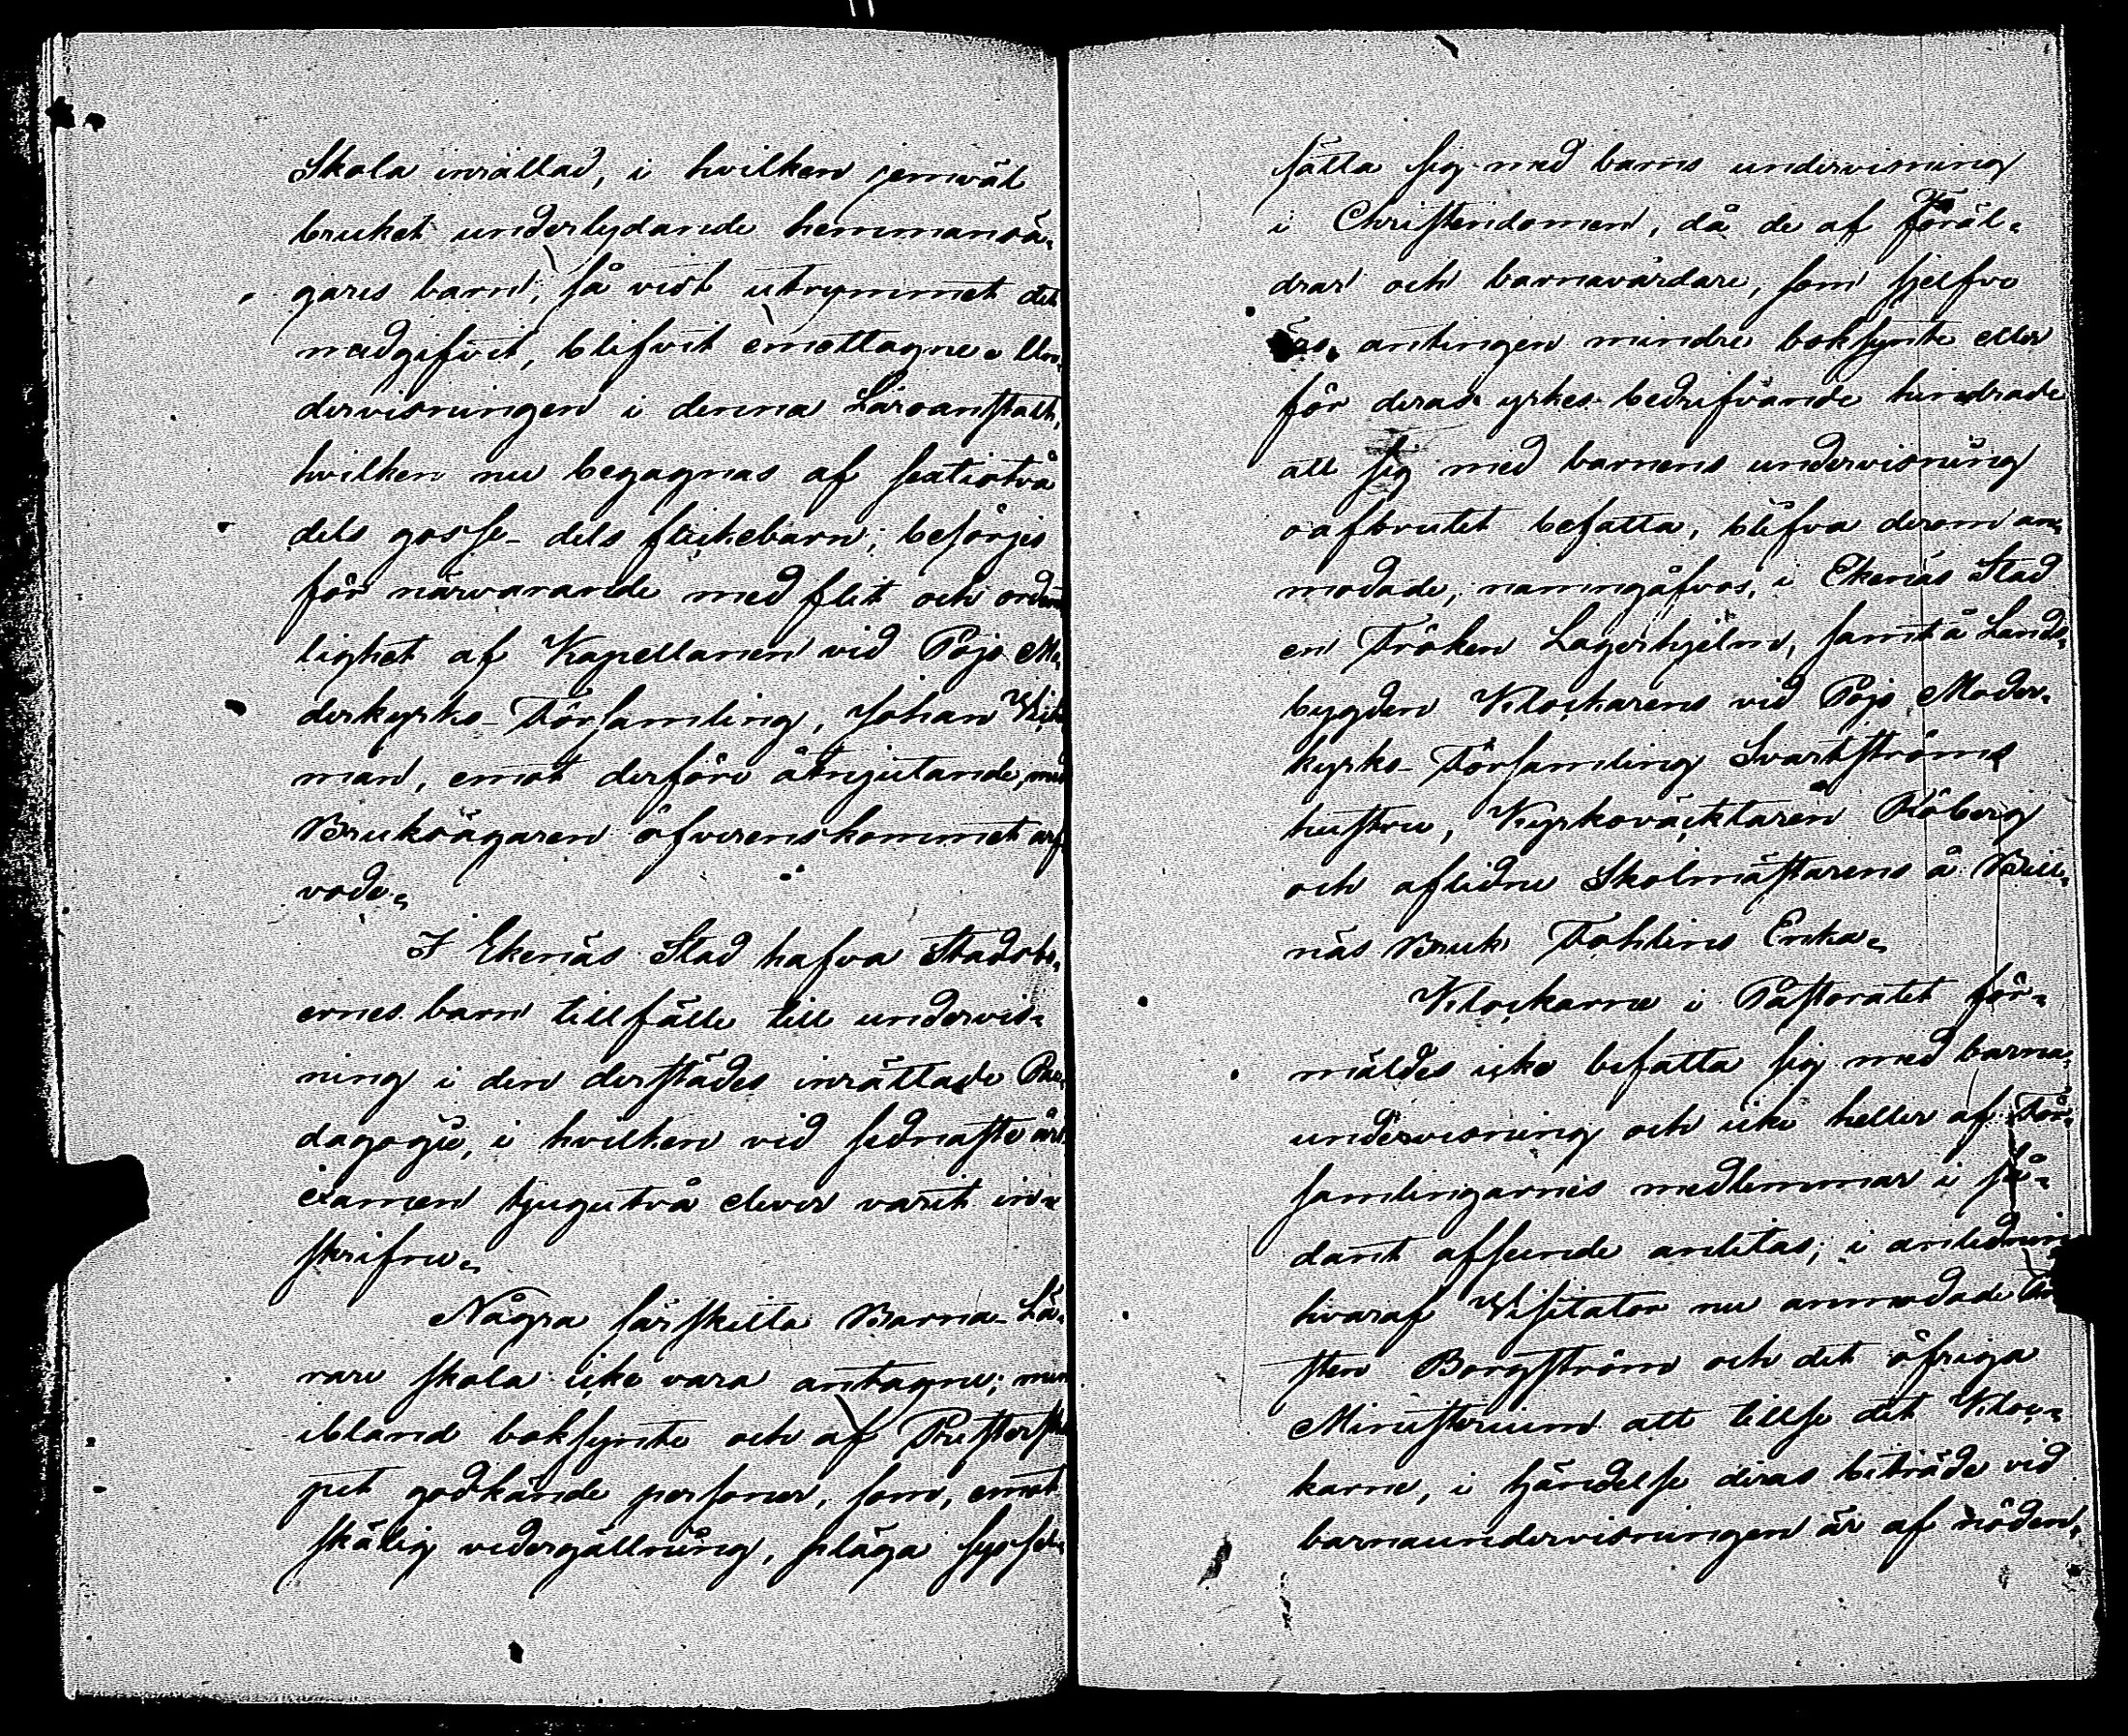 Skola inrättad, i hvilken jemväl
bruket underlydande hemmansä-
gares barn, så vidt utrymmet det
medgifvit, blifvit emottagne. Un-
dervisningen i denna Läroanstalt,
hvilken nu begagnas af sextiotvå
dels gosse- dels flickebarn, besörjes
för närvarande med flit och ordent
lighet af Kapellanen vid Pojo Mo-
derkyrko-Församling, Johan
man, emot derföre åtnjutande, med
Bruksägaren öfverenskommet arf
vode.
I Ekenäs Stad hafva Stadsbo-
ernes barn tillfälle till undervis-
ning i den derstädes inrättade Pae-
dagogie, i hvilken vid sednaste års
examen tjugutvå elever varit in-
skrifne.
Några särskilta Barna-Lä-
rare skola icke vara antagne; men
ibland boksynte och af Presterska
pet godkände personer, som, emot
skälig vedergällning, pläga syssel-
sätta sig med barns undervisning
i Christendomen, då de af Föräl-
drar och barnavårdare, som sjelfve
äro antingen mindre boksynte eller
för deras yrkes bedrifvande hindrade
att sig med barnens undervisning
oafbrutet befatta, blifva derom an-
modade, namngåfvos, i Ekenäs Stad
en Fröken Lagerhjelm, samt å Lands-
bygden Klockarens vid Pojo Moder-
kyrko-Församling Svartströms
hustru, Kyrkoväcktaren Röberg
och aflidne Skolmästarens å Bill-
näs Bruk Dahlins Enka.
Klockarne i Pastoratet för-
mäldes icke befatta sig med barna-
undervisning och icke heller af För-
samlingarnes medlemmar i så-
dant afseende anlitas; i anledning
hvaraf Visitator nu anmodade Pro
sten Borgström och det öfriga
Ministerium att tillse det Kloc-
karne, i händelse deras biträde vid
barnaundervisningen är af nöden,